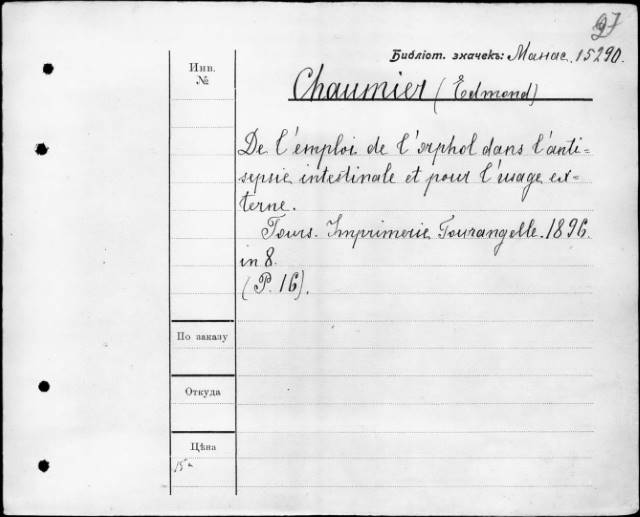 27
Библіот. значекъ: Манас. 15290.
Инв.
№
Chaumier (Edmond)
De l'emploi de l'orphol dans l'anti-
sepsie intestinale et pour l'usage ex-
terne.
Tours. Imprimerie Tourangelle. 1896.
in 8.
(P. 16).
По заказу
Откуда
Цѣна